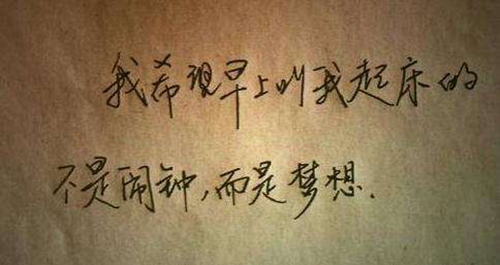 我希望早上叫我起床的
不是闹钟，而是梦想.